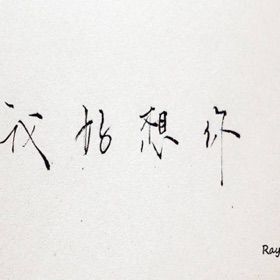 我好想你
Ray